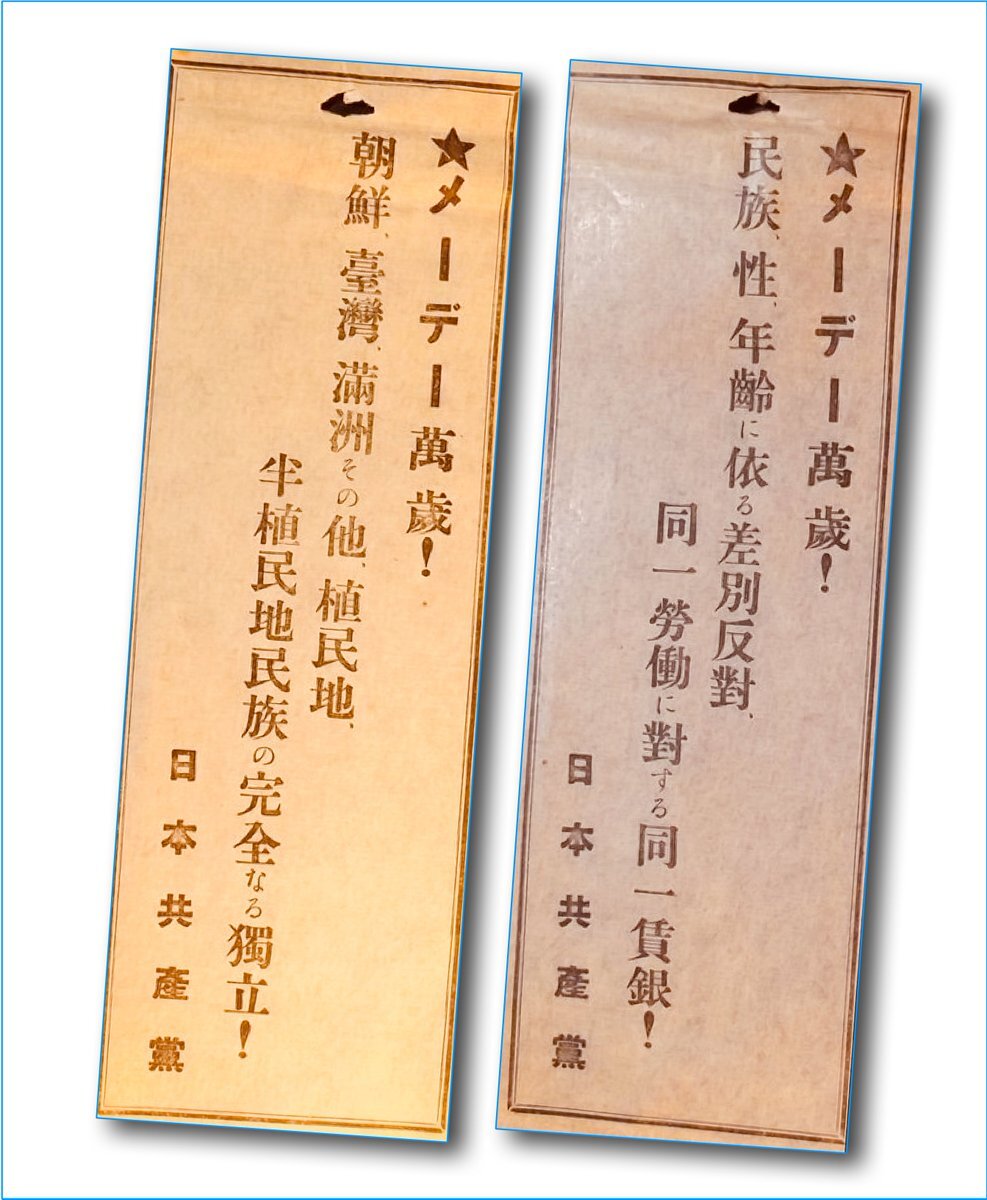 ★メーデー萬歲!
民族、性、年齡に依る差別反對、
同一勞働に對する同一賃銀!
日本共產黨
★メーデー萬歲!
朝鮮、臺灣、滿洲その他、植民地、
半植民地民族の完全なる獨立!
日本共產黨